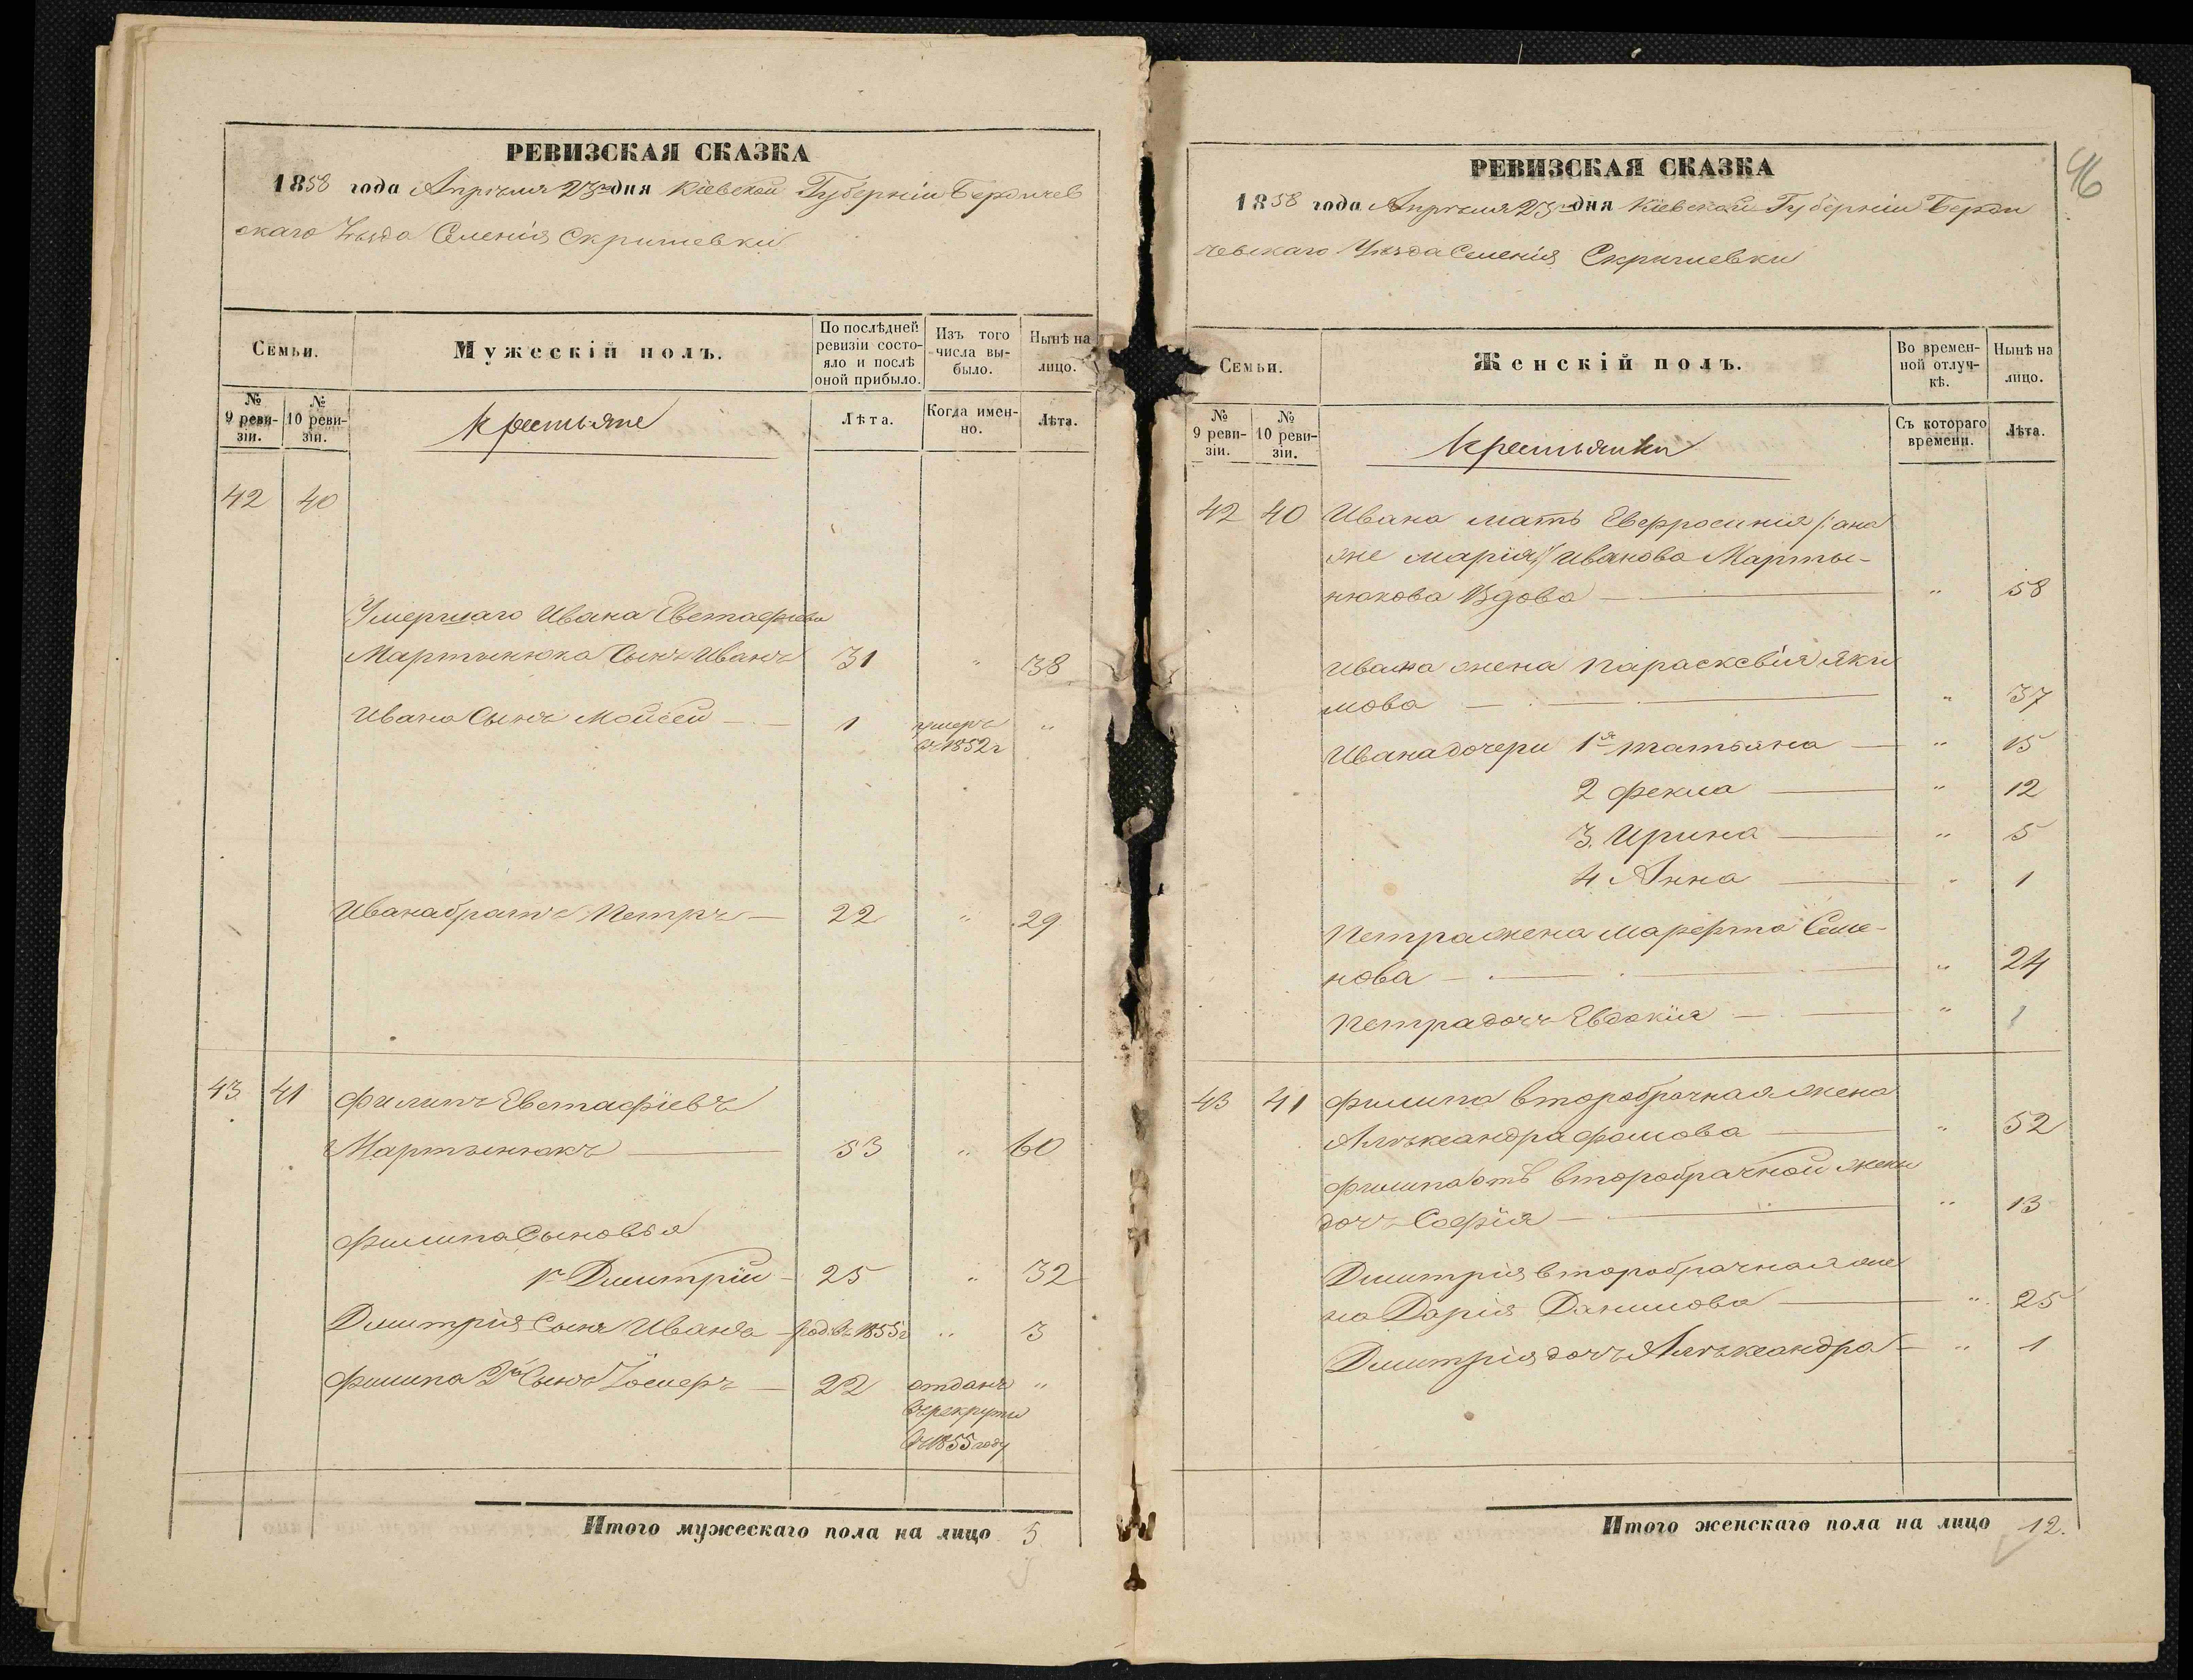 РЕВИЗСКАЯ СКАЗКА
1858 года Апрѣля 23 дня Кіевской Губерніи Бердичев
скаго Уѣзда Селенія Скришевки
Семьи.
Мужескій полъ.
По послѣдней ревизіи состояло и послѣ оной прибыло.
Изъ того числа выбыло.
Нынѣ на лицо.
№ 9 ревизіи.
№ 10 ревизіи.
Крестьяне
Лѣта.
Когда именно.
Лѣта.
42 40
Умершаго Ивана Евстафіева
Мартынюка Сынъ Иванъ 31 " 38
Ивана Сынъ Моисей 1 умеръ "
въ 1852 г
Ивана братъ Петръ 22 " 29
43 41 Филипъ Евстафіевъ
Мартынюкъ 53 " 60
Филипа Сыновья
1й Димитрій 25 " 32
Димитрія Сынъ Иванъ род. въ 1855 г " 3
Филипа 2й Сынъ 22 отданъ "
въ рекруты
въ 1855 году
Итого мужескаго пола на лицо 5
46
РЕВИЗСКАЯ СКАЗКА
1858 года Апрѣля 23 дня Кіевской Губерніи Берди
чевскаго Уѣзда Селенія Скришевки
Семьи.
Женскій полъ.
Во временной отлучкѣ.
Нынѣ на лицо.
№ 9 ревизіи.
№ 10 ревизіи.
Крестьянки
Съ котораго времени.
Лѣта.
42 40 Ивана мать Евфросинія /: она
же Марія :/ Иванова Марты-
нюкова Вдова " 58
Ивана жена Параскевія Яки
мова " 37
Ивана дочери 1я Татьяна " 15
2 Фекла " 12
3. Ирина " 5
4 Анна " 1
Петра жена Марфа Семе-
нова " 24
Петра дочь Евдокія " 1
43 41 Филипа второбрачная жена
Алѣксандра Фомова " 52
Филипа отъ второбрачной жены
дочь Софія " 13
Димитрія второбрачная же
на Дарія Данилова " 25
Димитрія дочь Алѣксандра " 1
Итого женскаго пола на лицо 12.